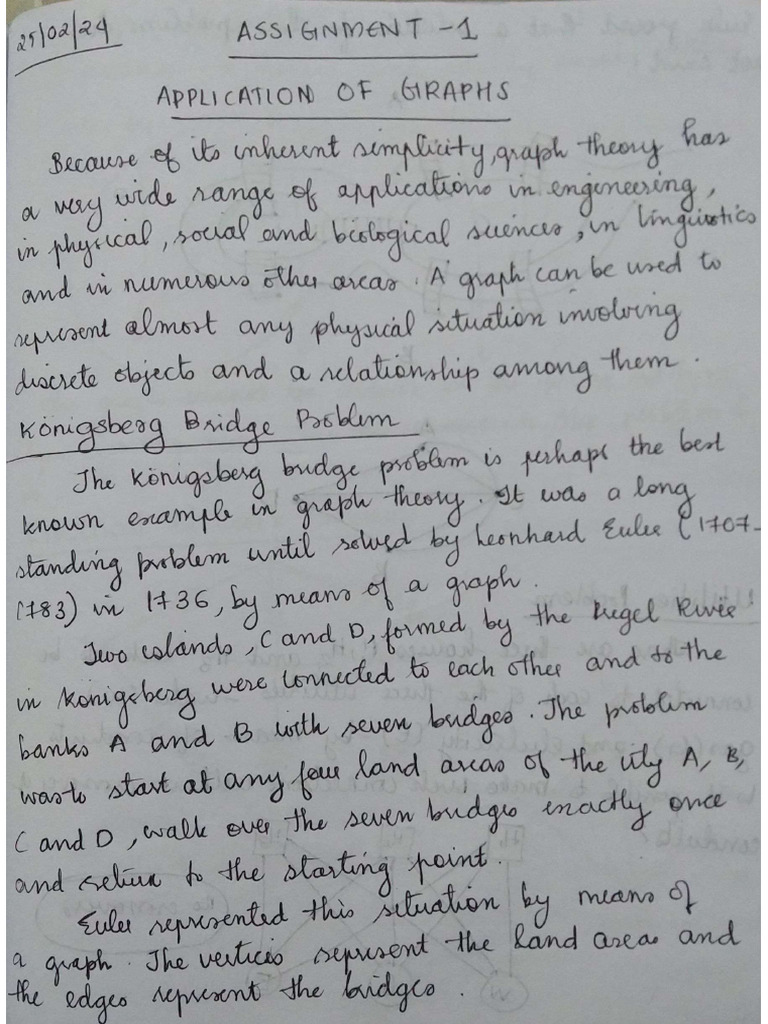 25/02/24
ASSIGNMENT - 1
APPLICATION OF GRAPHS
Because of its inherent simplicity, graph theory has
a very wide range of applications in engineering,
in physical, social and biological sciences, in linguistics
and in numerous other areas. A graph can be used to
represent almost any physical situation involving
discrete objects and a relationship among them.
Königsberg Bridge Problem
The Königsberg bridge problem is perhaps the best
known example in graph theory. It was a long
standing problem until solved by Leonhard Euler (1707-
1783) in 1736, by means of a graph.
Two islands, C and D, formed by the Pregel River
in Konigsberg were connected to each other and to the
banks A and B with seven bridges. The problem
was to start at any four land areas of the city A, B,
C and D, walk over the seven bridges exactly once
and return to the starting point.
Euler represented this situation by means of
a graph. The vertices represent the land areas and
the edges represent the bridges.